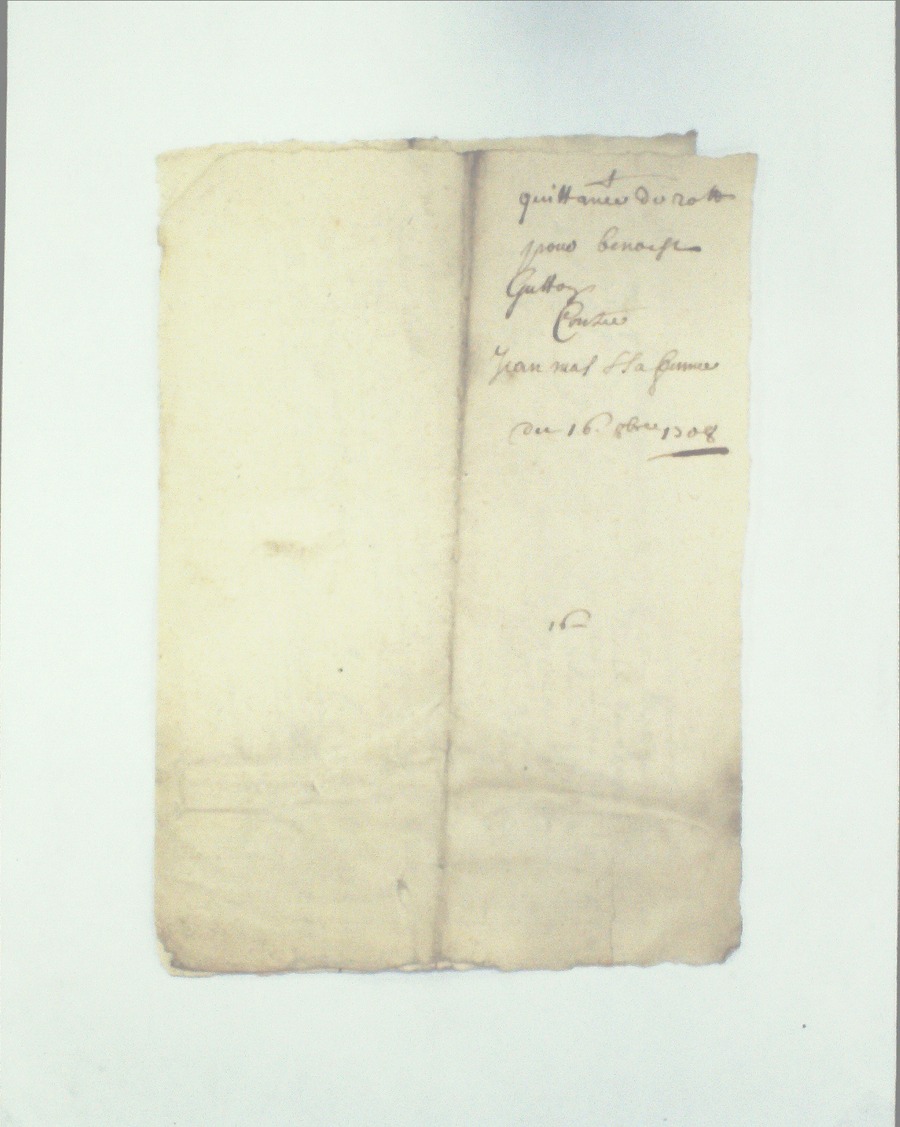 quittance du rotte
pour benoist
Guttoy
Contre
Jean mas & sa femme
du 16 8bre 1708
16